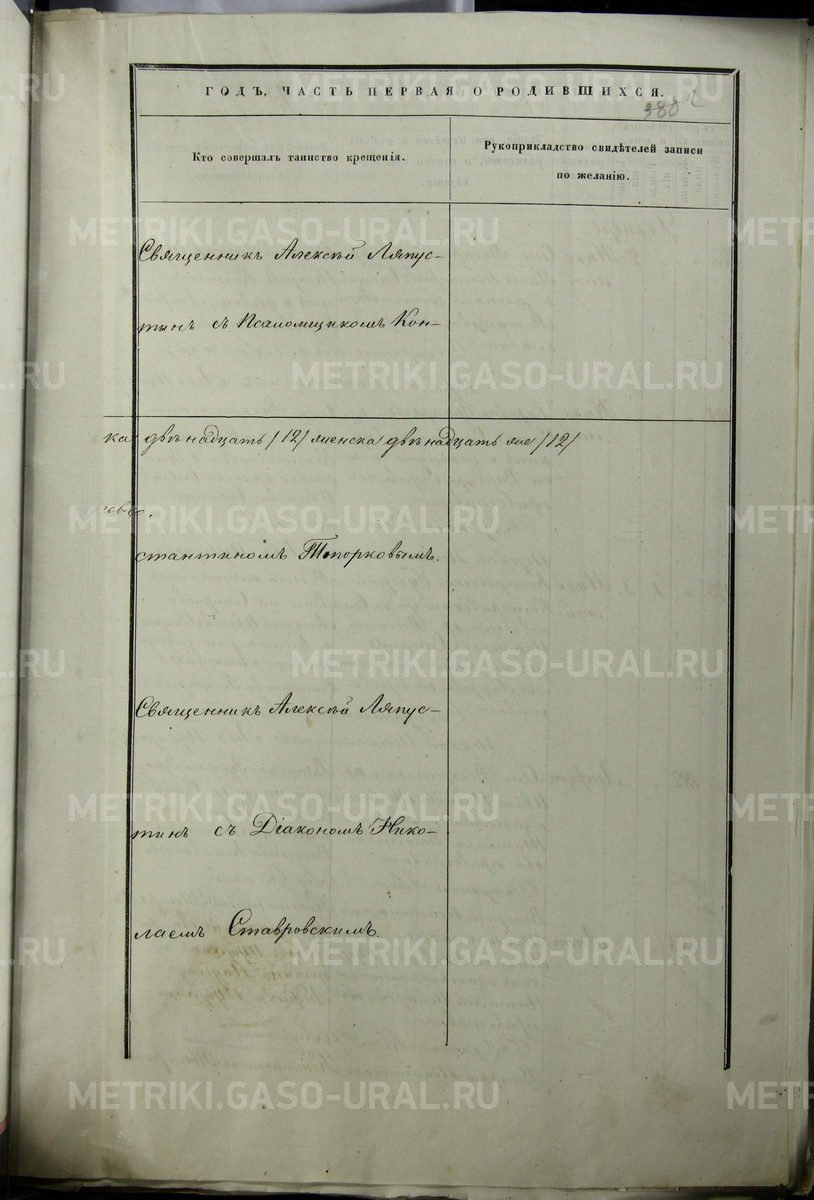 ГОДЪ, ЧАСТЬ ПЕРВАЯ О РОДИВШИХСЯ.
380
Кто совершалъ таинство крещенія.
Рукоприкладство свидѣтелей записи
по желанію.
Священникъ Алексѣй Ляпус-
тинъ съ Псаломщикомъ Кон-
ка двѣнадцать /12/ женска двѣнадцать же /12/
стантиномъ Топорковымъ.
Священникъ Алексѣй Ляпус-
тинъ съ Діакономъ Нико-
лаемъ Ставровскимъ.
METRIKI.GASO-URAL.RU